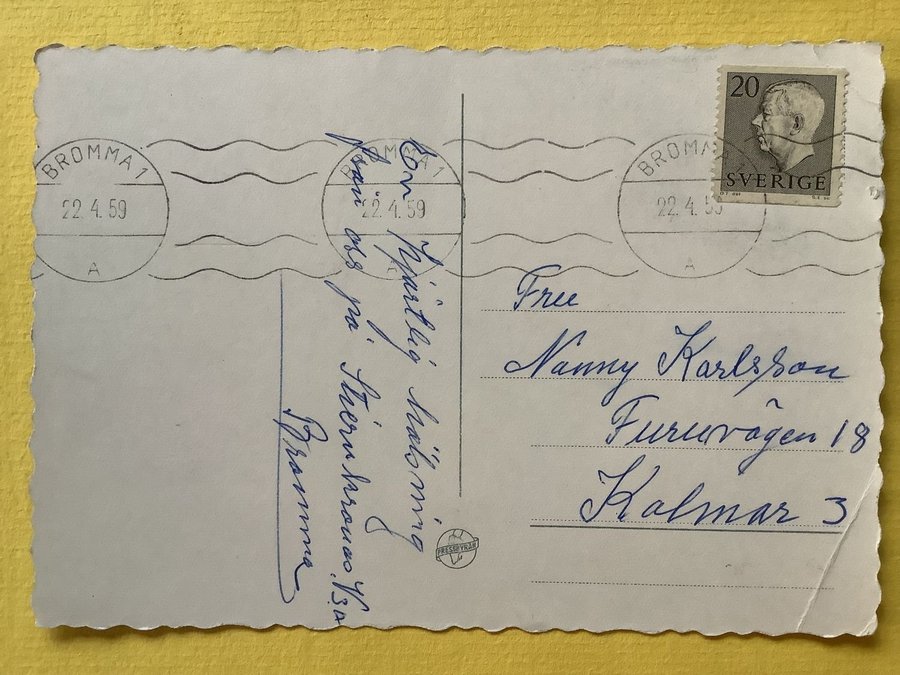 BROMMA 1
22.4.59
A
BROMMA 1
22.4.59
A
BROMMA
22.4.59
A
20
SVERIGE
En hjärtlig hälsning
från oss på
Bromma
PRESSBYRÅN
Fru
Nanny Karlsson
Furuvägen 18
Kalmar 3